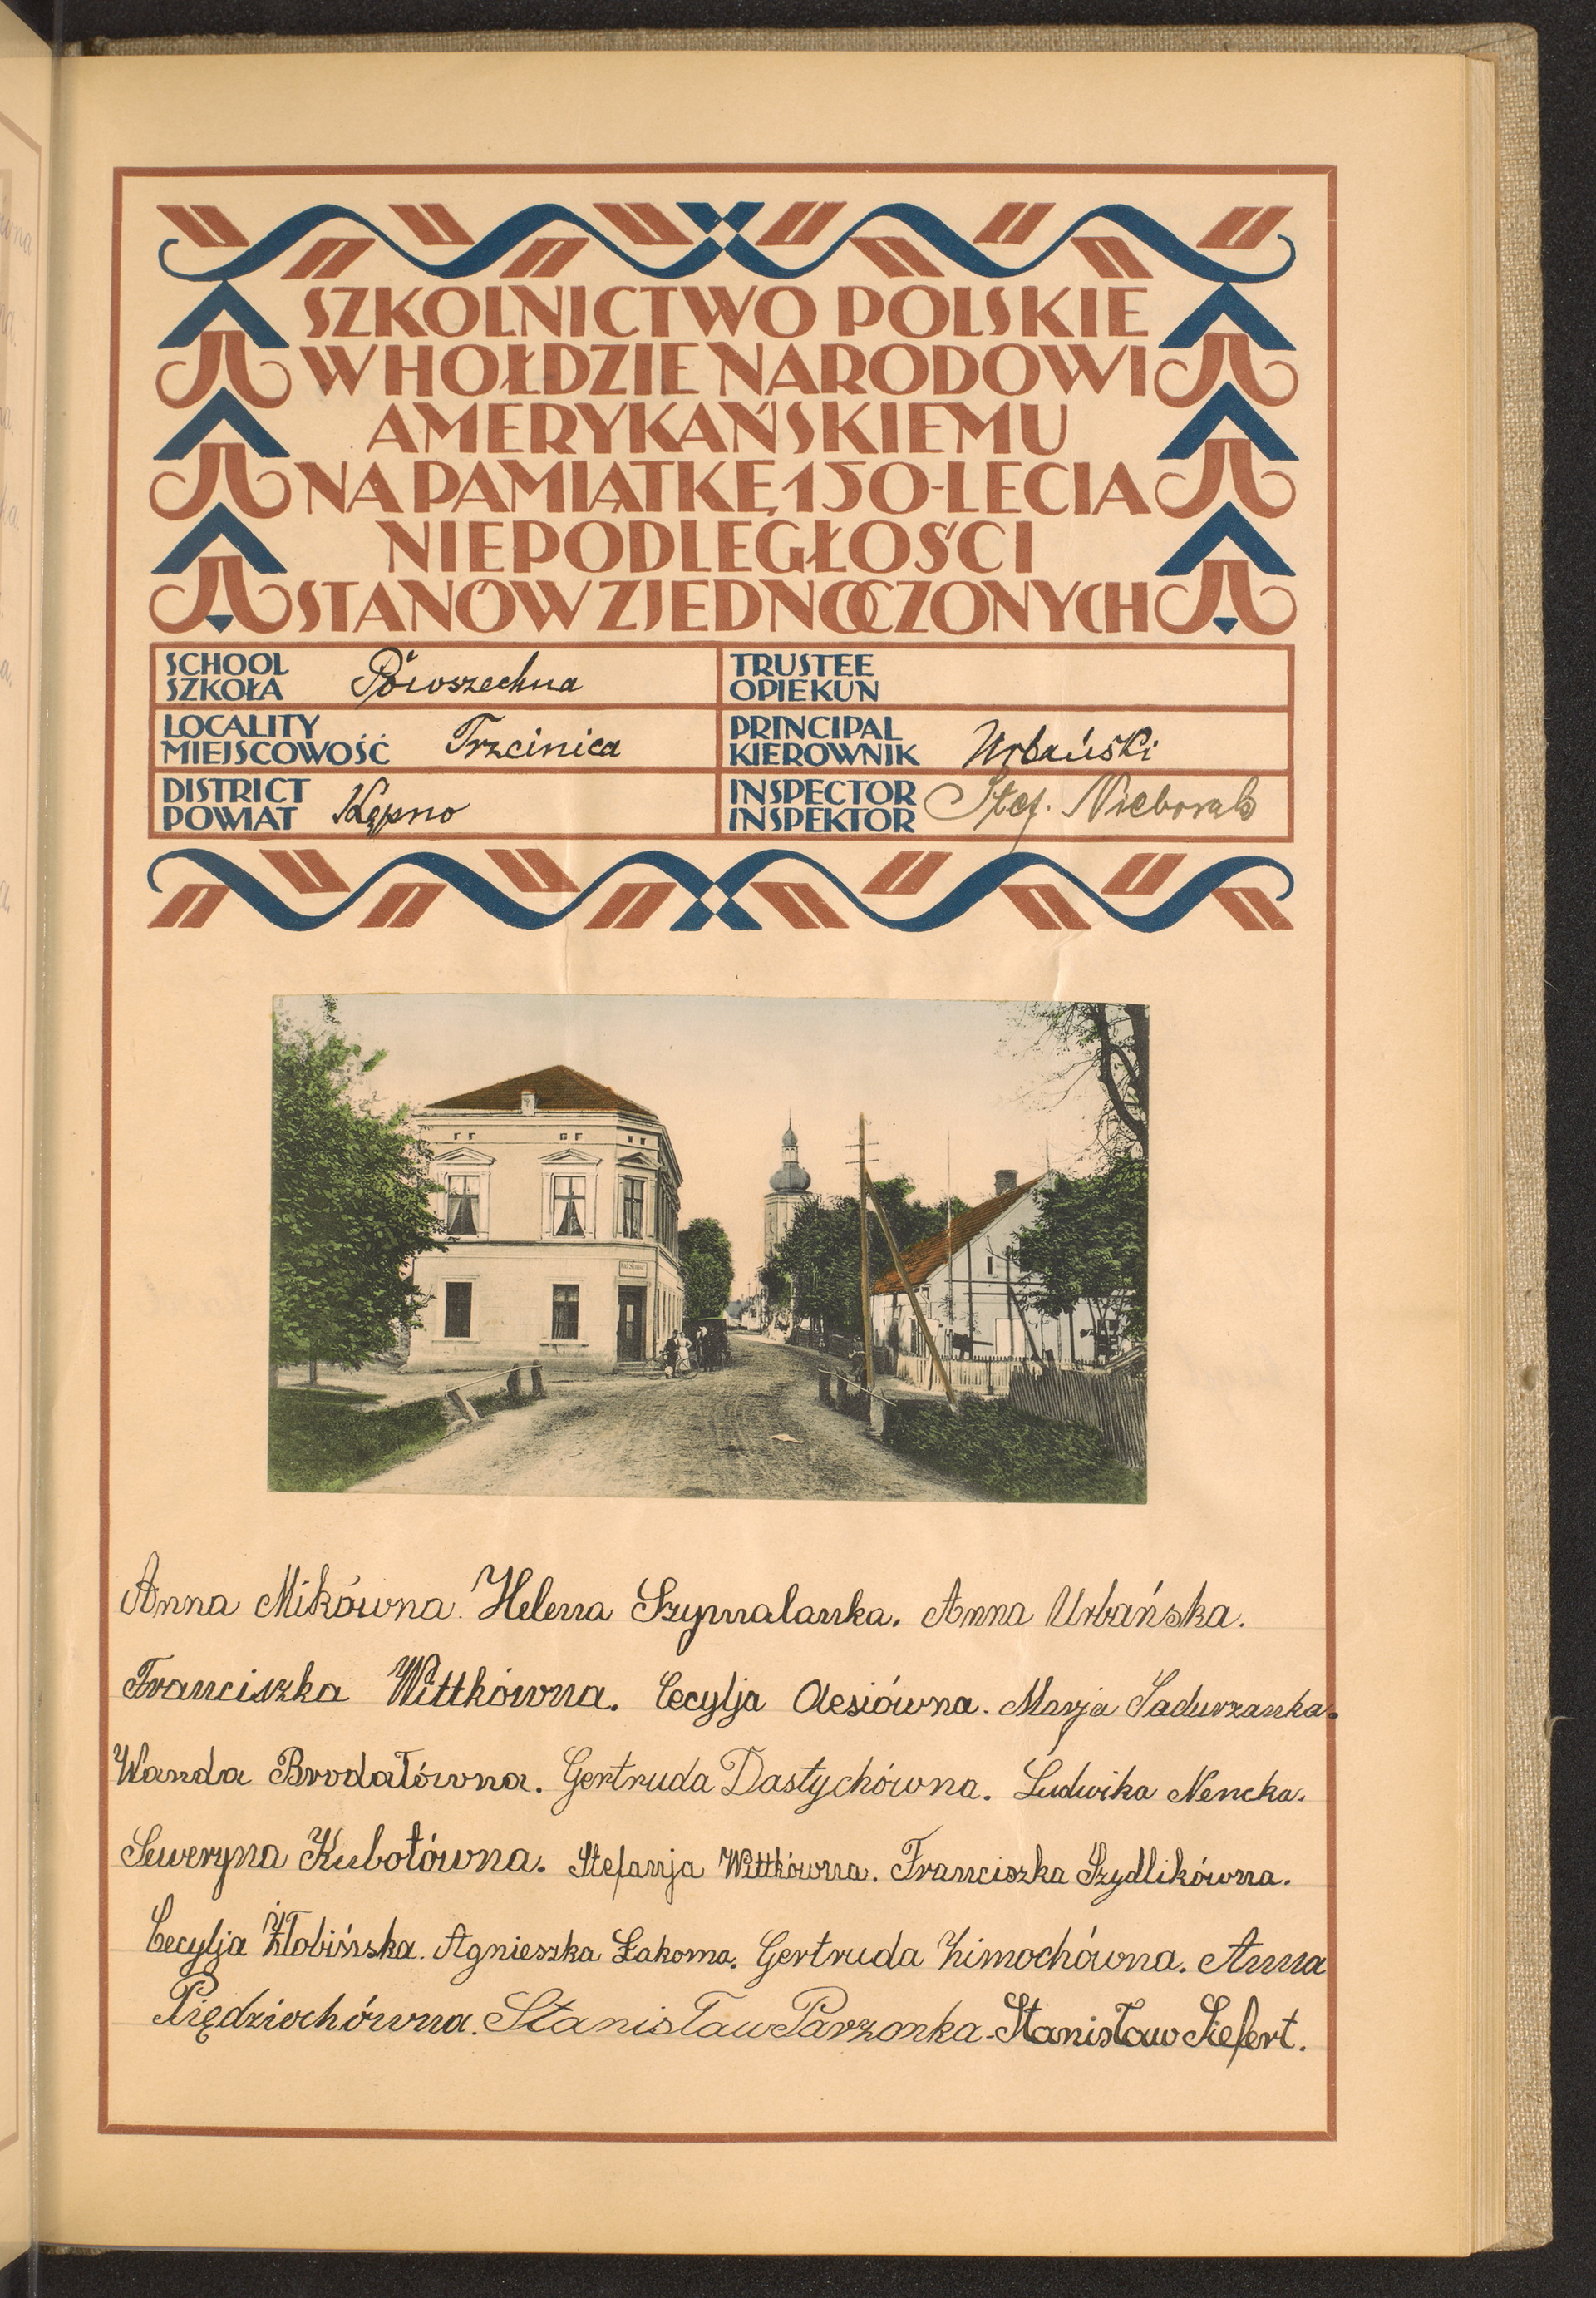 SZKOLNICTWO POLSKIE
W HOŁDZIE NARODOWI
AMERYKAŃSKIEMU
NA PAMIĄTKĘ 150-LECIA
NIEPODLEGŁOŚCI
STANÓW ZJEDNOCZONYCH
SCHOOL
SZKOŁA Powszechna
TRUSTEE
OPIEKUN
LOCALITY
MIEJSCOWOŚĆ Trzcinica
PRINCIPAL
KIEROWNIK Urbański
DISTRICT
POWIAT Kępno
INSPECTOR
INSPEKTOR Stef. Nieborak
Anna Mikówna. Helena Szymalanka. Anna Urbańska.
Franciszka Wittkówna. Cecylja Aesiówna. Marja Sadurzanka.
Wanda Brodałówna. Gertruda Dastychówna. Ludwika Nencka.
Seweryna Kubotówna. Stefanja Wittkówna. Franciszka Szydlikówna.
Cecylja Żłobińska. Agnieszka Łakoma. Gertruda Zimochówna. Anna
Piędziochówna. Stanisław Parzonka. Stanisław Siefert.